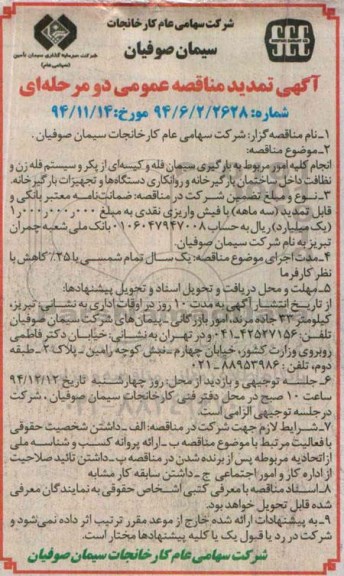 شرکت سهامی عام کارخانجات
سیمان صوفیان
شرکت سرمایه گذاری سیمان تأمین
(سهامی عام)
SCC
آگهی تمدید مناقصه عمومی دو مرحله‌ای
شماره: ۹۴/۶/۲/۲۶۲۸ مورخ: ۹۴/۱۱/۱۴
۱-نام مناقصه‌گزار: شرکت سهامی عام کارخانجات سیمان صوفیان.
۲-موضوع مناقصه:
انجام کلیه امور مربوط به بارگیری سیمان فله و کیسه‌ای از پکر و سیستم فله زن و
نظافت داخل ساختمان بارگیرخانه و روانکاری دستگاه‌ها و تجهیزات بارگیرخانه.
۳-نوع و مبلغ تضمین شرکت در مناقصه: ضمانت‌نامه معتبر بانکی و
قابل تمدید (سه ماهه) یا فیش واریزی نقدی به مبلغ ۱٫۰۰۰٫۰۰۰٫۰۰۰
(یک میلیارد) ریال به حساب ۰۱۰۶۰۴۷۹۴۷۰۰۸ بانک ملی شعبه چمران
تبریز به نام شرکت سیمان صوفیان.
۴-مدت اجرای موضوع مناقصه: یک سال تمام شمسی با ۲۵٪ کاهش با
نظر کارفرما
۵-مهلت و محل دریافت و تحویل اسناد و تحویل پیشنهادها:
از تاریخ انتشار آگهی به مدت ۱۰ روز در اوقات اداری به نشانی: تبریز،
کیلومتر ۳۳ جاده مرند، امور بازرگانی - پیمان‌های شرکت سیمان صوفیان
تلفن: ۴۲۵۲۷۱۵۶-۰۴۱ و در تهران به نشانی: خیابان دکتر فاطمی
روبروی وزارت کشور، خیابان چهارم-نبش کوچه رامین-پلاک ۲-طبقه
دوم، تلفن: ۸۸۹۵۳۹۸۶-۰۲۱
۶-جلسه توجیهی و بازدید از محل: روز چهارشنبه تاریخ ۹۴/۱۲/۱۲
ساعت ۱۰ صبح در محل دفتر فنی کارخانجات سیمان صوفیان، شرکت
در جلسه توجیهی الزامی است.
۷-شرایط لازم جهت شرکت در مناقصه: الف-داشتن شخصیت حقوقی
با فعالیت مرتبط با موضوع مناقصه ب-ارائه پروانه کسب و شناسه ملی
از اتحادیه مربوطه پس از برنده شدن در مناقصه پ-داشتن تائید صلاحیت
از اداره کار و امور اجتماعی ج-داشتن سابقه کار مشابه
۸-اسناد مناقصه با معرفی کتبی اشخاص حقوقی به نمایندگان معرفی
شده قابل تحویل خواهد بود.
۹-به پیشنهادات ارائه شده خارج از موعد مقرر ترتیب اثر داده نمی‌شود و
شرکت در رد یا قبول یک یا کلیه پیشنهادها مختار است.
شرکت سهامی عام کارخانجات سیمان صوفیان